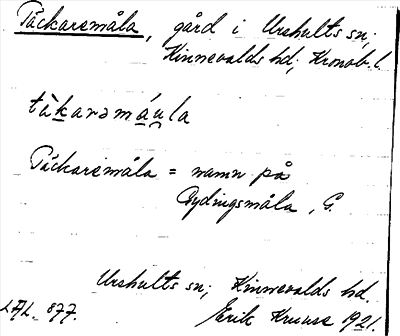 Täckaremåla, gård i Urshults sn;
Kinnevalds hd; Kronob. l.
tàkarəmáula
Täckaremåla = namn på
Rydingsmåla, G.
Urshults sn; Kinnevalds hd.
LAL. 877. Erik Kruuse 1921.